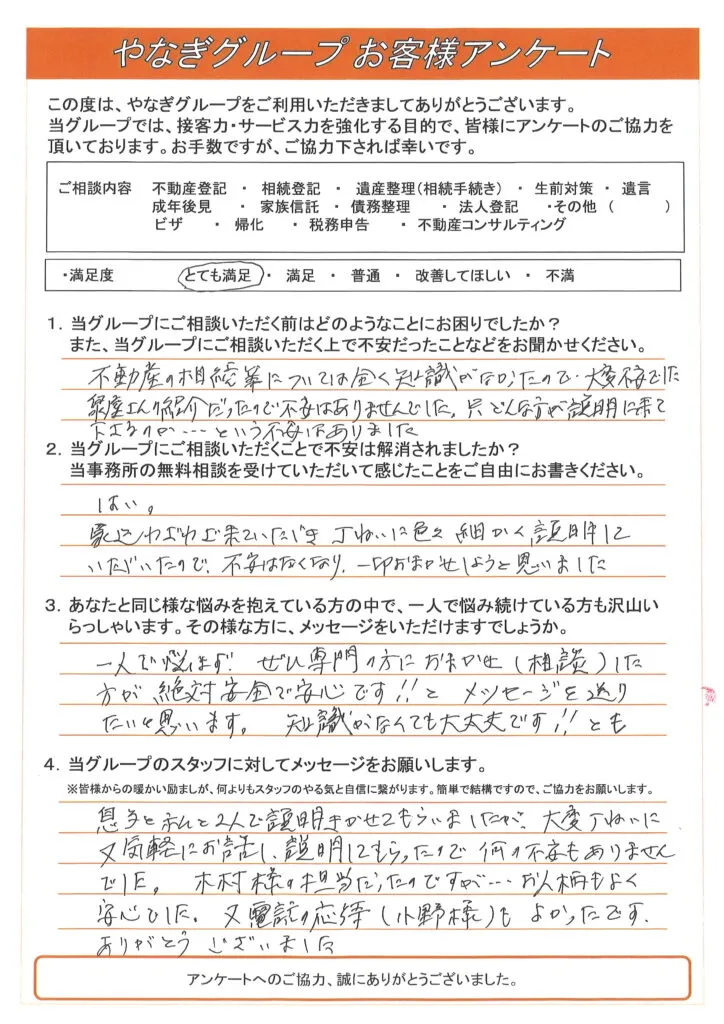 やなぎグループ お客様アンケート
この度は、やなぎグループをご利用いただきましてありがとうございます。
当グループでは、接客力・サービス力を強化する目的で、皆様にアンケートのご協力を
頂いております。お手数ですが、ご協力下されば幸いです。
ご相談内容 不動産登記 ・ 相続登記 ・ 遺産整理(相続手続き) ・ 生前対策 ・ 遺言
成年後見 ・ 家族信託 ・ 債務整理 ・ 法人登記 ・その他 ( )
ビザ ・ 帰化 ・ 税務申告 ・ 不動産コンサルティング
・満足度 とても満足 ・ 満足 ・ 普通 ・ 改善してほしい ・ 不満
1. 当グループにご相談いただく前はどのようなことにお困りでしたか?
また、当グループにご相談いただく上で不安だったことなどをお聞かせください。
不動産の相続等については全く知識がなかったので・大変不安でした
さんの紹介だったので不安はありませんでした。只どんな方が説明に来て
下さるのか・・・・という不安はありました
2. 当グループにご相談いただくことで不安は解消されましたか?
当事務所の無料相談を受けていただいて感じたことをご自由にお書きください。
はい。
家迄わざわざ来ていただき 丁ねいに色々 細かく説明して
いただいたので、不安はなくなり、一切おまかせしようと思いました
3. あなたと同じ様な悩みを抱えている方の中で、一人で悩み続けている方も沢山い
らっしゃいます。その様な方に、メッセージをいただけますでしょうか。
一人で悩まず ぜひ専門の方におまかせ(相談)した
方が絶対安全で安心です!!と メッセージを送り
たいと思います。 知識がなくても大丈夫です!!とも
4. 当グループのスタッフに対してメッセージをお願いします。
※皆様からの暖かい励ましが、何よりもスタッフのやる気と自信に繋がります。簡単で結構ですので、ご協力をお願いします。
息子と私と2人で説明きかせてもらいましたが、大変丁ねいに
又気軽にお話し、説明してもらったので何の不安もありません
でした。 木村様の担当だったのですが・・・お人柄もよく
安心でした。又電話の応待(小野様)も よかったです。
ありがとう ございました
アンケートへのご協力、誠にありがとうございました。